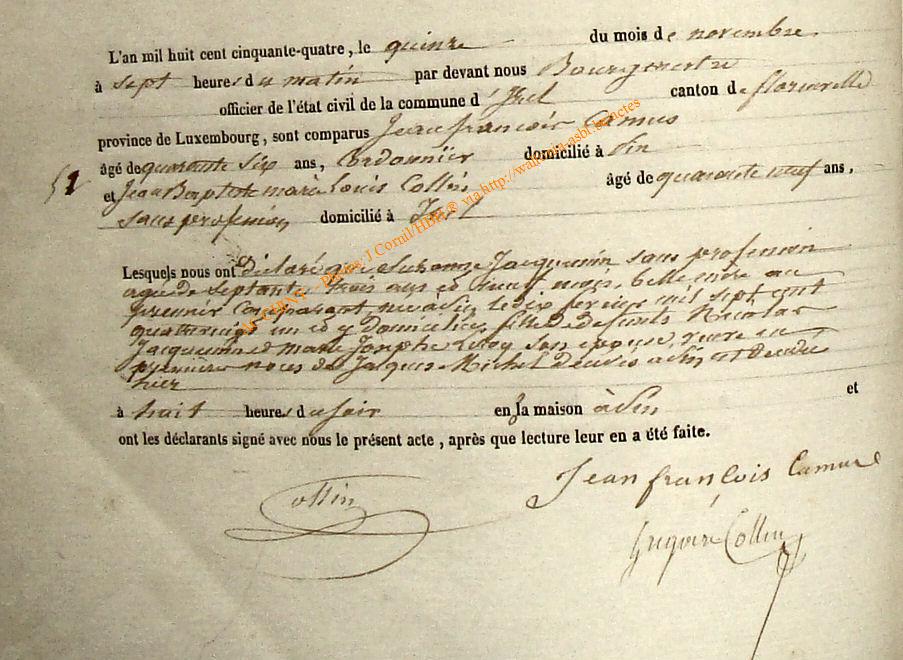 L'an mil huit cent cinquante-quatre, le quinze du mois de novembre
à sept heures du matin par devant nous Bourgmestre
officier de l'état civil de la commune d'Izel canton de florenville
province de Luxembourg, sont comparus Jean françois Camus
âgé de quarante six ans, Cordonnier domicilié à
et Jean Baptiste marie Louis Collin âgé de quarante neuf ans,
sans profession domicilié à Izel
Lesquels nous ont déclaré que Suzanne Jacquemin sans profession
agée de septante trois ans et neuf mois, belle mère au
premier Comparant née à le dix fevrier mil sept cent
quatrevingt un et y domiciliée, fille de defunts Nicolas
Jacquemin et marie Josephe son épouse, veuve en
premières noces de Jacques Michel est décédée
hier
à huit heures du soir en la maison à et
ont les déclarants signé avec nous le présent acte, après que lecture leur en a été faite.
Collin
Jean françois Camus
Grégoire Collin
via http://wallonia-asbl.be/actes